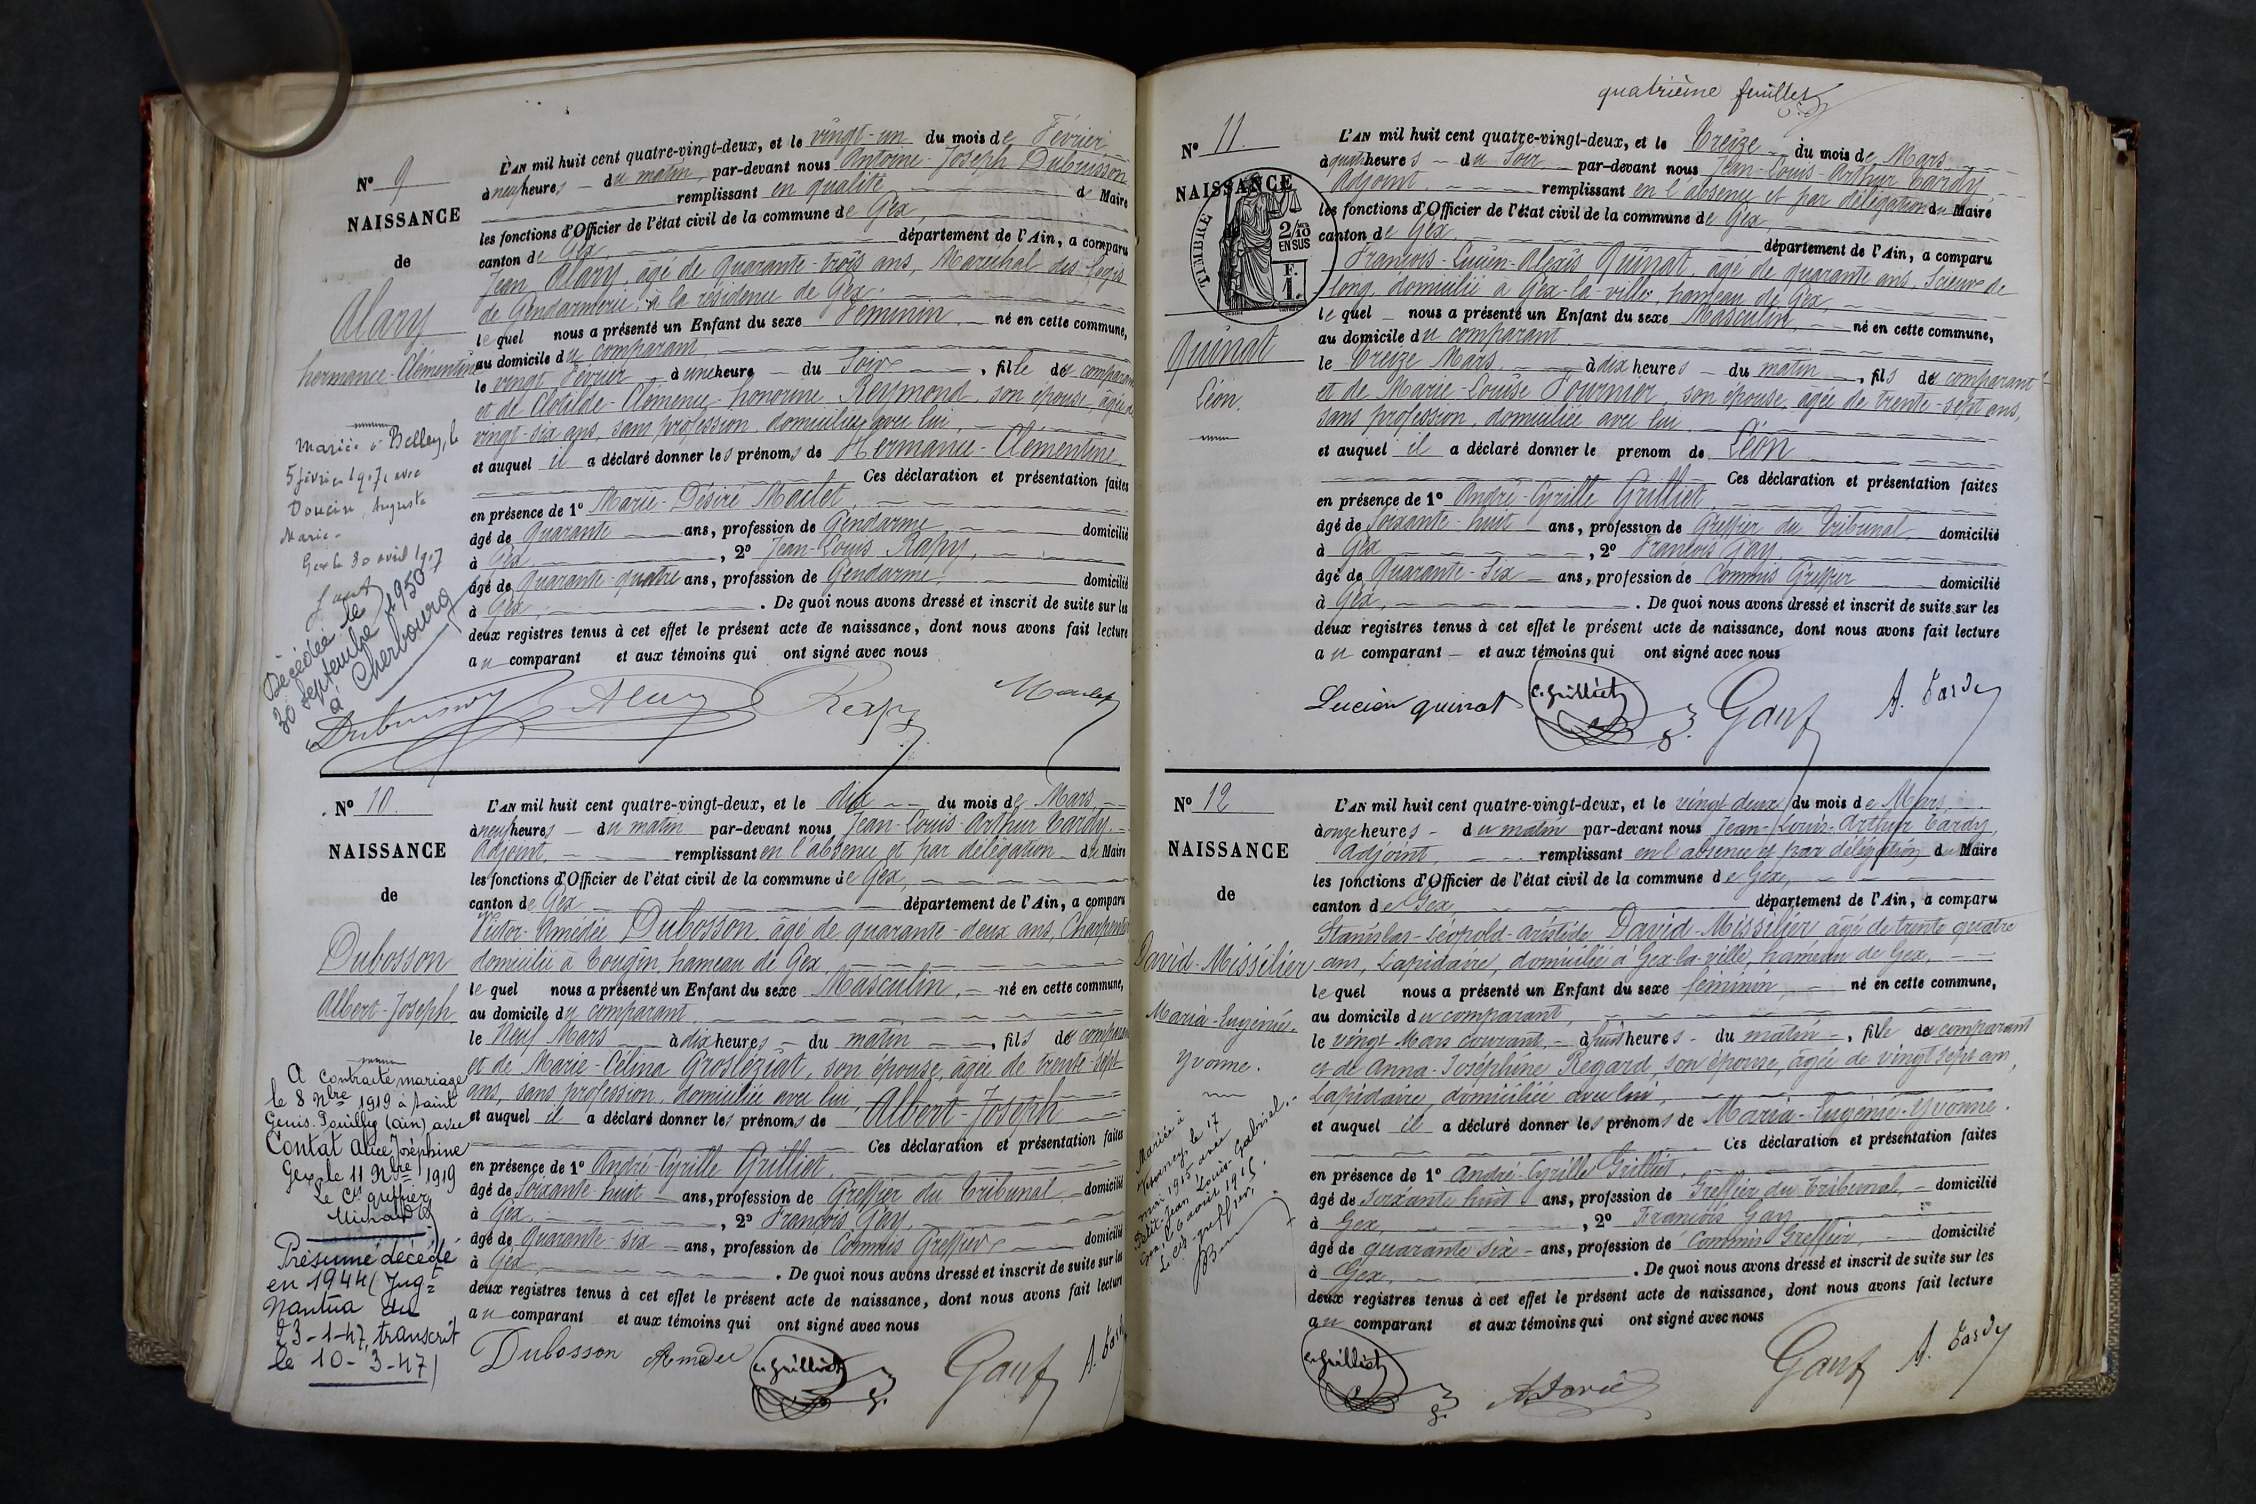 N° 9
NAISSANCE
de
Alary
hermance-Clémentine
Mariée à Belley, le
5 février 1907, avec
Doucin, Auguste
Marie.
Gex le 30 avril 1907
Décédée le
30 septembre 1950
à Cherbourg
L'AN mil huit cent quatre-vingt-deux, et le vingt-un du mois de Février
à neuf heures du matin par-devant nous Antoine-Joseph Dubuisson
remplissant en qualité de Maire
les fonctions d'Officier de l'état civil de la commune de Gex,
canton de Gex département de l'Ain, a comparu
Jean Alary, âgé de quarante-trois ans, Maréchal des logis
de Gendarmerie, à la résidence de Gex.
lequel nous a présenté un Enfant du sexe Féminin né en cette commune,
au domicile du comparant
le vingt Février à une heure du Soir, fille de comparant
et de Clotilde-Clémence-honorine Reymond, son épouse, âgée de
vingt-six ans, sans profession, domiciliée avec lui,
et auquel il a déclaré donner les prénoms de Hermance-Clémentine.
Ces déclaration et présentation faites
en présence de 1° Marie-Désiré Maclet,
âgé de quarante ans, profession de Gendarme domicilié
à Gex, 2° Jean-Louis Rapy,
âgé de quarante-quatre ans, profession de Gendarme, domicilié
à Gex. De quoi nous avons dressé et inscrit de suite sur les
deux registres tenus à cet effet le présent acte de naissance, dont nous avons fait lecture
au comparant et aux témoins qui ont signé avec nous
Dubuisson Alary Rapy Maclet
N° 10.
NAISSANCE
de
Dubosson
Albert-Joseph
A contracté mariage
le 8 Nbre 1919 à Saint
Genis-Pouilly (Ain) avec
Contat Alice Joséphine
Gex le 11 Nbre 1919
Le Cs greffier
Présumé décédé
en 1944 (Jugt
Nantua du
23-1-47, transcrit
le 10-3-47)
L'AN mil huit cent quatre-vingt-deux, et le dix du mois de Mars
à neuf heures du matin par-devant nous Jean-Louis-Arthur Tardy
Adjoint, remplissant en l'absence et par délégation du Maire
les fonctions d'Officier de l'état civil de la commune de Gex,
canton de Gex département de l'Ain, a comparu
Victor-Amédée Dubosson, âgé de quarante-deux ans, Charpentier
domicilié à Tougin, hameau de Gex,
lequel nous a présenté un Enfant du sexe Masculin, né en cette commune,
au domicile du comparant
le Neuf Mars à dix heures du matin, fils de comparant
et de Marie-Célina Grosléziat, son épouse, âgée de trente-sept
ans, sans profession, domiciliée avec lui,
et auquel il a déclaré donner les prénoms de Albert-Joseph
Ces déclaration et présentation faites
en présence de 1° André-Cyrille Grilliet,
âgé de Soixante-huit ans, profession de Greffier du Tribunal, domicilié
à Gex, 2° François Gay,
âgé de Quarante-six ans, profession de Commis Greffier domicilié
à Gex. De quoi nous avons dressé et inscrit de suite sur les
deux registres tenus à cet effet le présent acte de naissance, dont nous avons fait lecture
au comparant et aux témoins qui ont signé avec nous
Dubosson Amédée C. Grilliet A. Tardy
quatrième feuillet
N° 11.
NAISSANCE
TIMBRE
2/10 EN SUS
F. 1.
Quinat
Léon.
L'AN mil huit cent quatre-vingt-deux, et le Treize du mois de Mars
à quatre heures du Soir par-devant nous Jean-Louis-Arthur Tardy
Adjoint, remplissant en l'absence et par délégation du Maire
les fonctions d'Officier de l'état civil de la commune de Gex,
canton de Gex. département de l'Ain, a comparu
François-Lucien-Alexis Quinat, âgé de quarante ans, Scieur de
long, domicilié à Gex-la-ville, hameau de Gex,
lequel nous a présenté un Enfant du sexe Masculin, né en cette commune,
au domicile du comparant
le Treize Mars, à dix heures du matin, fils de comparant
et de Marie-Louise Fournier, son épouse, âgée de trente-sept ans,
sans profession, domiciliée avec lui
et auquel il a déclaré donner le prénom de Léon
Ces déclaration et présentation faites
en présence de 1° André-Cyrille Grilliet
âgé de Soixante-huit ans, profession de Greffier du Tribunal, domicilié
à Gex, 2° François Gay,
âgé de Quarante-Six ans, profession de Commis Greffier domicilié
à Gex. De quoi nous avons dressé et inscrit de suite sur les
deux registres tenus à cet effet le présent acte de naissance, dont nous avons fait lecture
au comparant et aux témoins qui ont signé avec nous
Lucien quinat C. Grilliet A. Tardy
N° 12
NAISSANCE
de
David-Missilier
Maria-Eugénie-
Yvonne.
Mariée à
le 17
mai 1915 avec
Petit-Jean Louis-Gabriel.
Gex, le 6 août 1915.
Le Cs greffier,
L'AN mil huit cent quatre-vingt-deux, et le vingt-deux du mois de Mars
à onze heures du matin par-devant nous Jean-Louis-Arthur Tardy,
adjoint, remplissant en l'absence et par délégation du Maire
les fonctions d'Officier de l'état civil de la commune de Gex,
canton de Gex, département de l'Ain, a comparu
Stanislas-Léopold-Aristide David-Missilier âgé de trente quatre
ans, Lapidaire, domicilié à Gex-la-ville, hameau de Gex,
lequel nous a présenté un Enfant du sexe féminin, né en cette commune,
au domicile du comparant,
le vingt Mars courant, à huit heures du matin, fille de comparant
et de Anna-Joséphine Regard, son épouse, âgée de vingt sept ans,
Lapidaire, domiciliée avec lui,
et auquel il a déclaré donner les prénoms de Maria-Eugénie-Yvonne.
Ces déclaration et présentation faites
en présence de 1° André-Cyrille Grilliet,
âgé de soixante huit ans, profession de Greffier du Tribunal, domicilié
à Gex, 2° François Gay
âgé de quarante six ans, profession de Commis Greffier, domicilié
à Gex, De quoi nous avons dressé et inscrit de suite sur les
deux registres tenus à cet effet le présent acte de naissance, dont nous avons fait lecture
au comparant et aux témoins qui ont signé avec nous
C. Grilliet A. Tardy